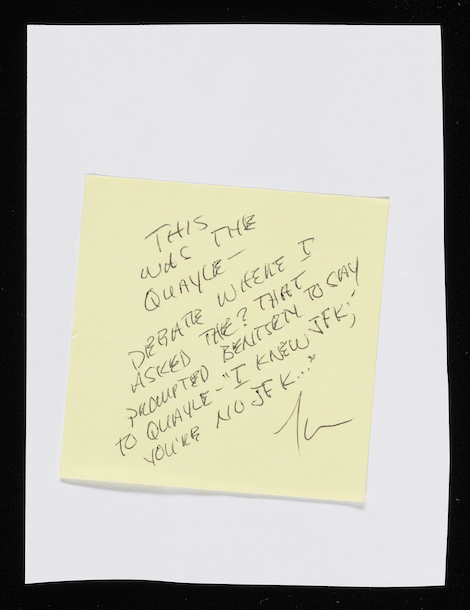 THIS
WAS THE
QUAYLE-
DEBATE WHERE I
ASKED THE ? THAT
PROMPTED BENTSEN TO SAY
TO QUAYLE - "I KNEW JFK;
YOU'RE NO JFK..."